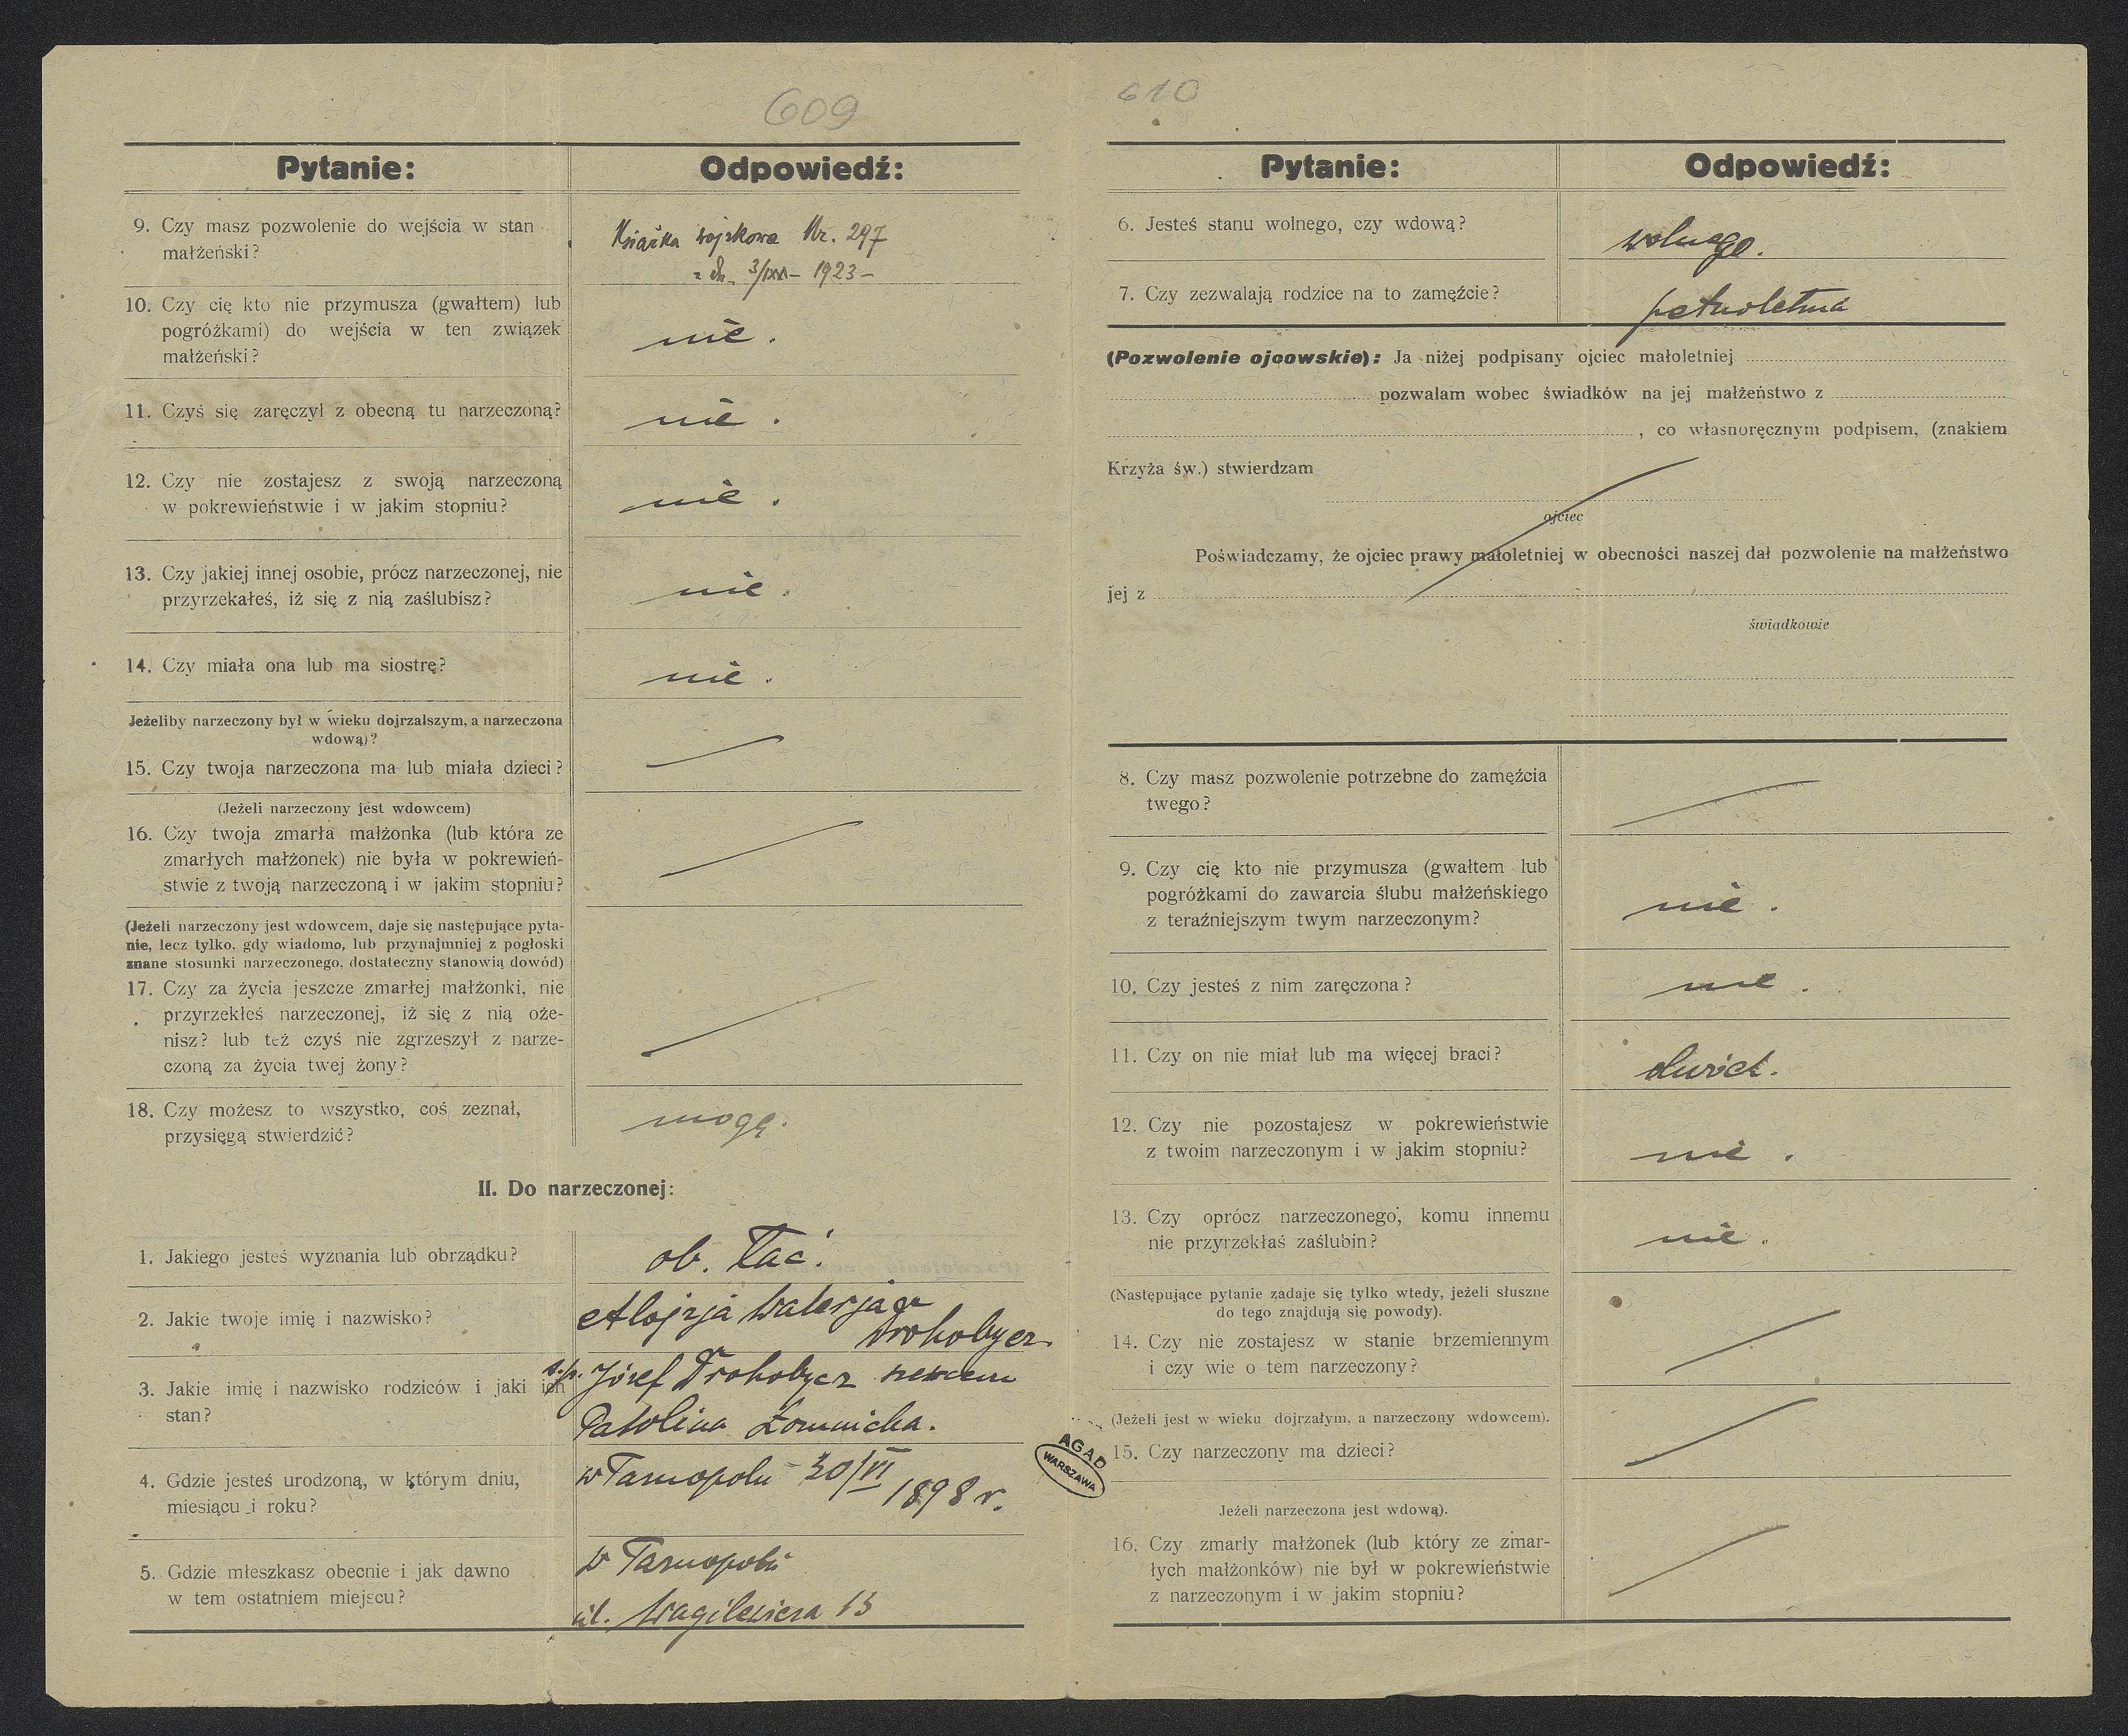 609
Pytanie:
Odpowiedź:
9. Czy masz pozwolenie do wejścia w stan
małżeński?
Książka wojskowa Nr. 297
z dn. 3/ – 1923 –
10. Czy cię kto nie przymusza (gwałtem) lub
pogróżkami) do wejścia w ten związek
małżeński?
nie.
11. Czyś się zaręczył z obecną tu narzeczoną?
nie.
12. Czy nie zostajesz z swoją narzeczoną
w pokrewieństwie i w jakim stopniu?
nie.
13. Czy jakiej innej osobie, prócz narzeczonej, nie
przyrzekałeś, iż się z nią zaślubisz?
nie.
14. Czy miała ona lub ma siostrę?
nie.
Jeżeliby narzeczony był w wieku dojrzalszym, a narzeczona
wdową)?
15. Czy twoja narzeczona ma lub miała dzieci?
(Jeżeli narzeczony jest wdowcem)
16. Czy twoja zmarła małżonka (lub która ze
zmarłych małżonek) nie była w pokrewień-
stwie z twoją narzeczoną i w jakim stopniu?
(Jeżeli narzeczony jest wdowcem, daje się następujące pyta-
nie, lecz tylko, gdy wiadomo, lub przynajmniej z pogłoski
znane stosunki narzeczonego, dostateczny stanowią dowód)
17. Czy za życia jeszcze zmarłej małżonki, nie
przyrzekłeś narzeczonej, iż się z nią oże-
nisz? lub też czyś nie zgrzeszył z narze-
czoną za życia twej żony?
18. Czy możesz to wszystko, coś zeznał,
przysięgą stwierdzić?
mogę.
II. Do narzeczonej:
1. Jakiego jesteś wyznania lub obrządku?
ob. łać.
2. Jakie twoje imię i nazwisko?
Alojzja Walerja
Drohobycz.
3. Jakie imię i nazwisko rodziców i jaki ich
stan?
ś.p. Józef Drohobycz szewcem
Karolina Łomnicka.
4. Gdzie jesteś urodzoną, w którym dniu,
miesiącu i roku?
w Tarnopolu 30/VI
1898 r.
5. Gdzie mieszkasz obecnie i jak dawno
w tem ostatniem miejscu?
w Tarnopolu
ul. Wagilewicza 13
610
Pytanie:
Odpowiedź:
6. Jesteś stanu wolnego, czy wdową?
wolnego.
7. Czy zezwalają rodzice na to zamęźcie?
pełnoletnia
(Pozwolenie ojcowskie): Ja niżej podpisany ojciec małoletniej
pozwalam wobec świadków na jej małżeństwo z
, co własnoręcznym podpisem, (znakiem
Krzyża św.) stwierdzam
ojciec
Poświadczamy, że ojciec prawy małoletniej w obecności naszej dał pozwolenie na małżeństwo
jej z
świadkowie
8. Czy masz pozwolenie potrzebne do zamęźcia
twego?
9. Czy cię kto nie przymusza (gwałtem lub
pogróżkami do zawarcia ślubu małżeńskiego
z teraźniejszym twym narzeczonym?
nie.
10. Czy jesteś z nim zaręczona?
nie.
11. Czy on nie miał lub ma więcej braci?
dwóch.
12. Czy nie pozostajesz w pokrewieństwie
z twoim narzeczonym i w jakim stopniu?
nie.
13. Czy oprócz narzeczonego, komu innemu
nie przyrzekłaś zaślubin?
nie.
(Następujące pytanie zadaje się tylko wtedy, jeżeli słuszne
do tego znajdują się powody).
14. Czy nie zostajesz w stanie brzemiennym
i czy wie o tem narzeczony?
(Jeżeli jest w wieku dojrzałym, a narzeczony wdowcem).
15. Czy narzeczony ma dzieci?
AGAD
WARSZAWA
Jeżeli narzeczona jest wdową).
16. Czy zmarły małżonek (lub który ze zmar-
łych małżonków) nie był w pokrewieństwie
z narzeczonym i w jakim stopniu?